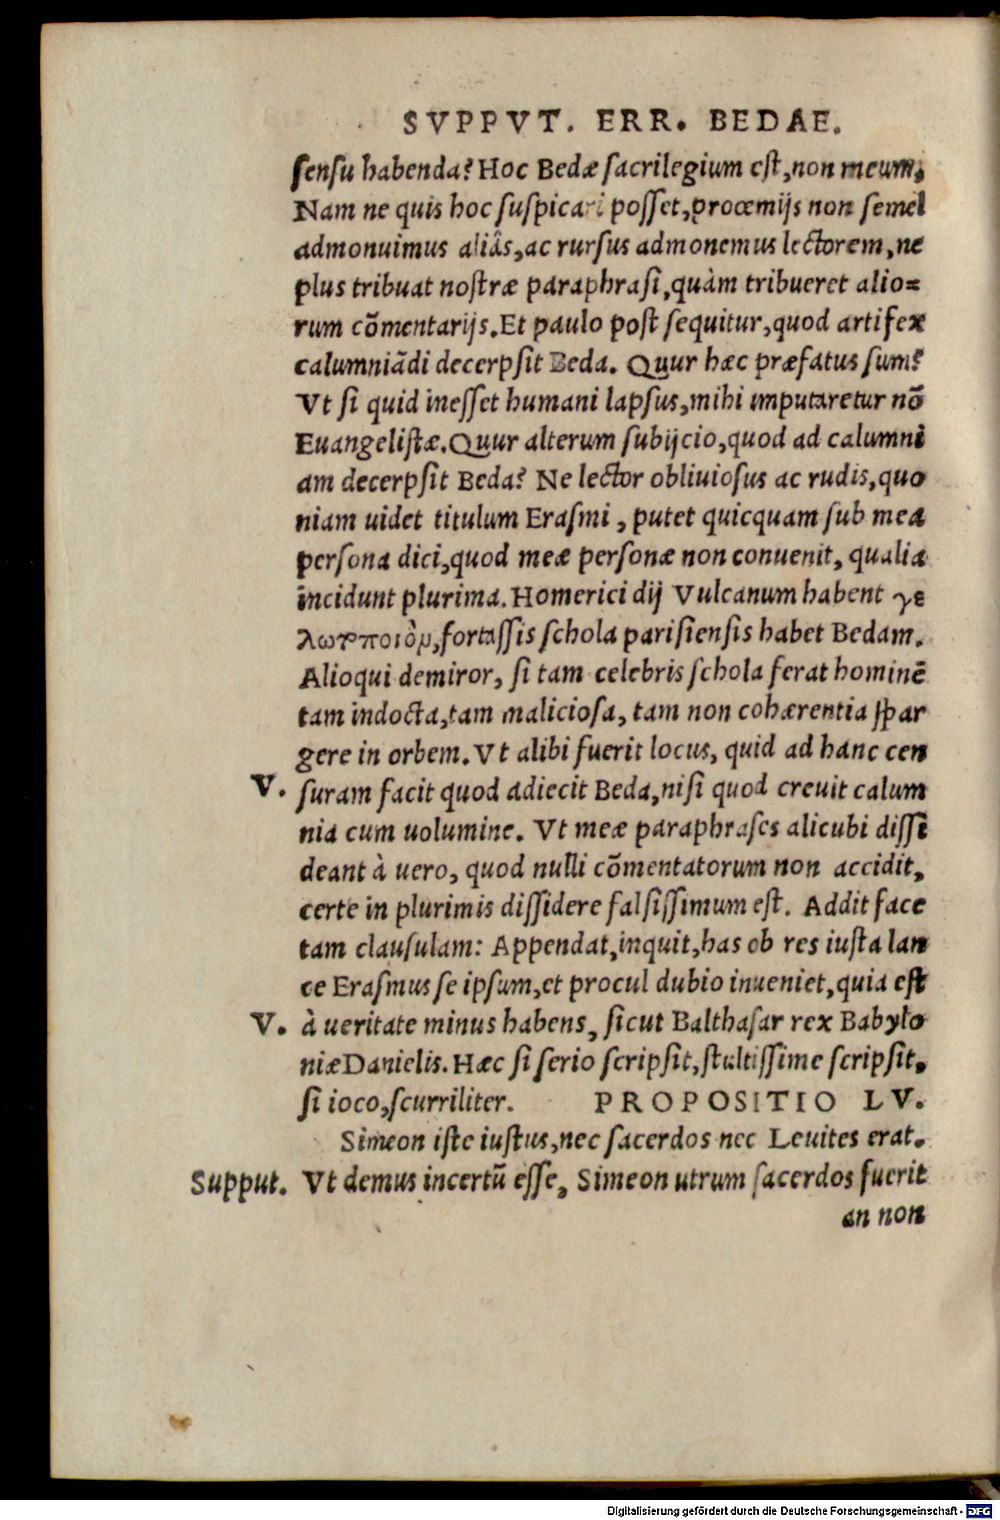 SVPPVT. ERR. BEDAE.
sensu habenda? Hoc Bedæ sacrilegium est, non meum.
Nam ne quis hoc suspicari posset, proœmijs non semel
admonuimus aliâs, ac rursus admonemus lectorem, ne
plus tribuat nostræ paraphrasi, quàm tribueret alio=
rum cõmentarijs. Et paulo post sequitur, quod artifex
calumniãdi decerpsit Beda. Quur hæc præfatus sum?
Vt si quid inesset humani lapsus, mihi imputaretur nõ
Euangelistæ. Quur alterum subijcio, quod ad calumni
am decerpsit Beda? Ne lector obliuiosus ac rudis, quo
niam uidet titulum Erasmi, putet quicquam sub mea
persona dici, quod meæ personæ non conuenit, qualia
incidunt plurima. Homerici dij Vulcanum habent γε
λωτοποιὸν, fortassis schola parisiensis habet Bedam.
Alioqui demiror, si tam celebris schola ferat hominẽ
tam indocta, tam maliciosa, tam non cohærentia spar
gere in orbem. Vt alibi fuerit locus, quid ad hanc cen
V. suram facit quod adiecit Beda, nisi quod creuit calum
nia cum uolumine. Vt meæ paraphrases alicubi dissi
deant à uero, quod nulli cõmentatorum non accidit,
certe in plurimis dissidere falsissimum est. Addit face
tam clausulam: Appendat, inquit, has ob res iusta lan
ce Erasmus se ipsum, et procul dubio inueniet, quia est
V. à ueritate minus habens, sicut Balthasar rex Babylo
niæ Danielis. Hæc si serio scripsit, stultissime scripsit,
si ioco, scurriliter. PROPOSITIO LV.
Simeon iste iustus, nec sacerdos nec Leuites erat.
Supput. Vt demus incertũ esse, Simeon utrum sacerdos fuerit
an non
Digitalisierung gefördert durch die Deutsche Forschungsgemeinschaft - DFG